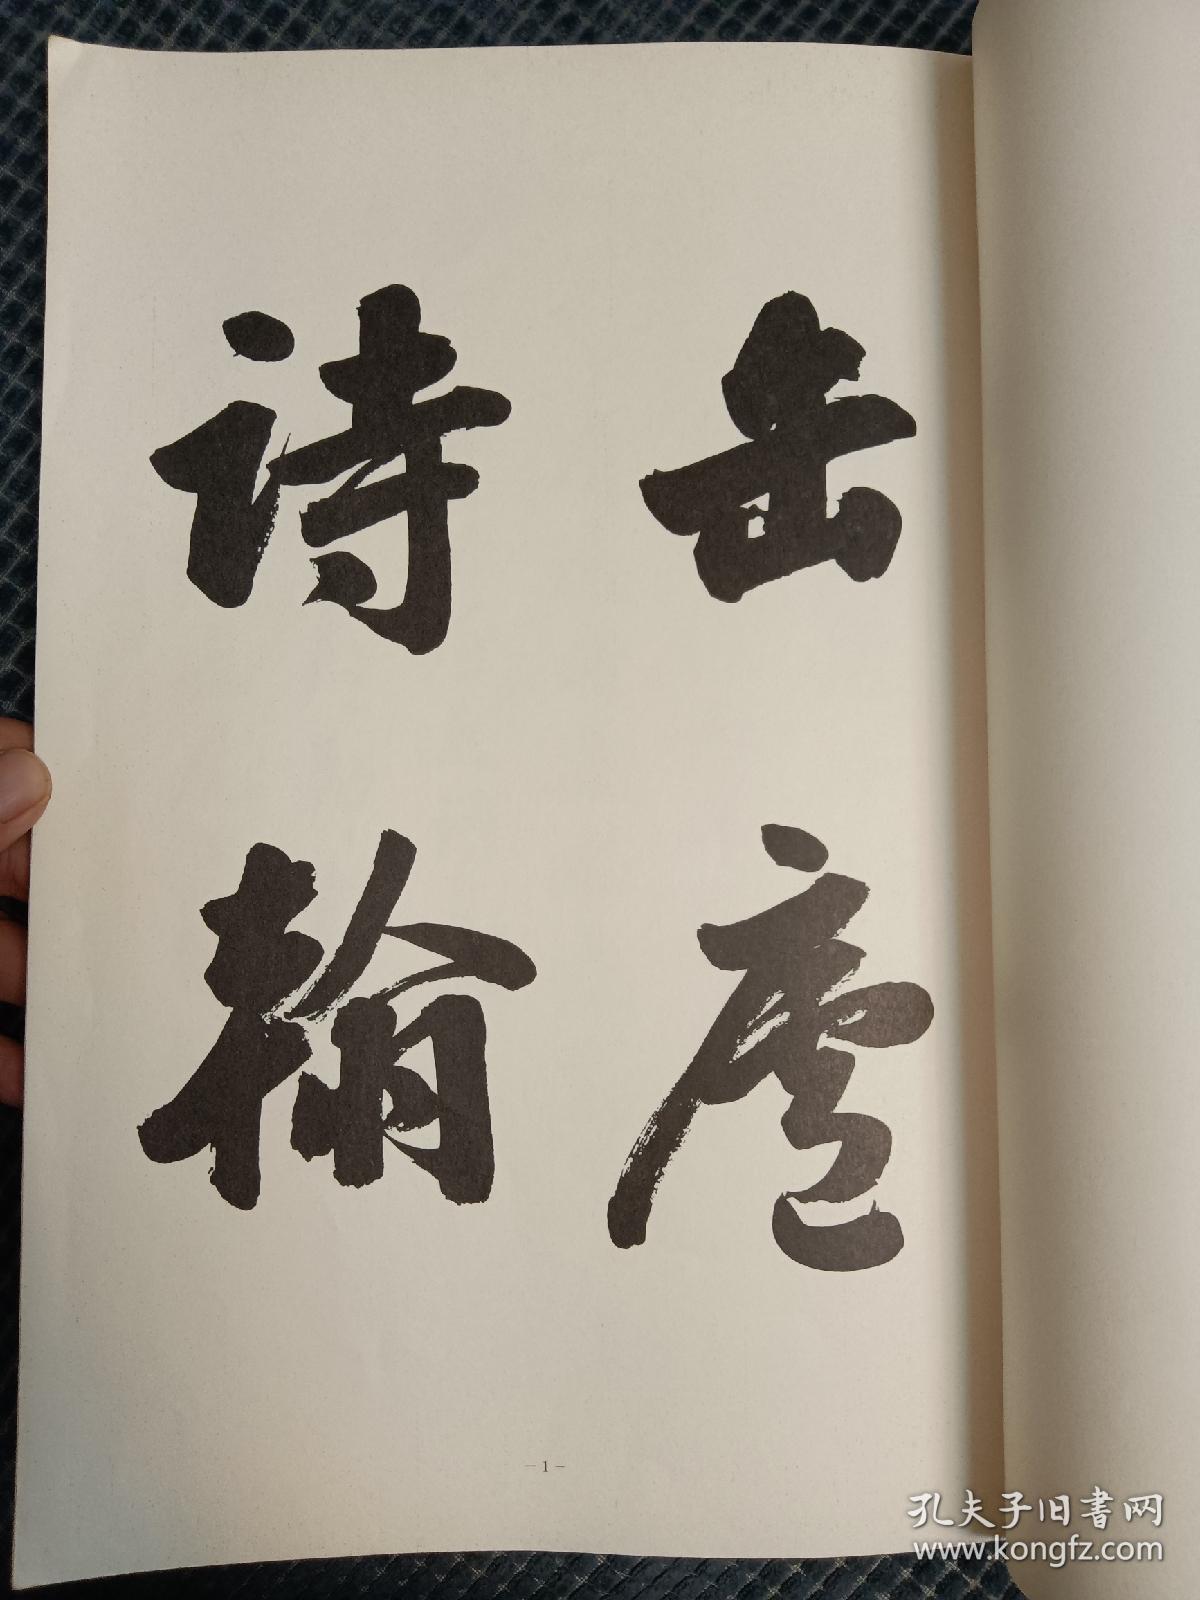 缶廬
詩翰
－1－
孔夫子旧書网
www.kongfz.com